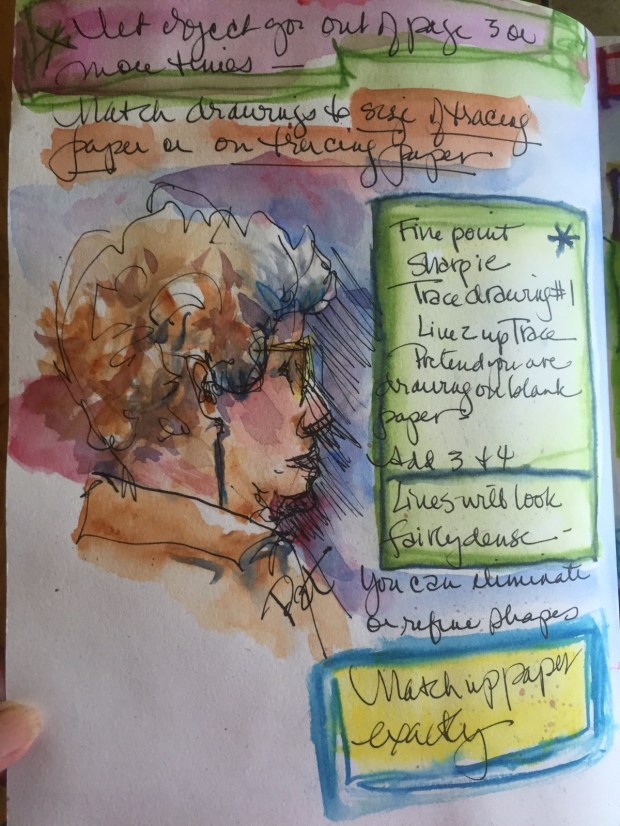 * Let object go out of page 3 or
more times —
Match drawings to size of tracing
paper or on tracing paper
Fine point *
Sharpie
Trace drawing #1
Line 2 up Trace
Pretend you are
drawing on blank
paper
Add 3 & 4
Lines will look
fairly dense -
You can eliminate
or refine shapes
Match up paper
exactly